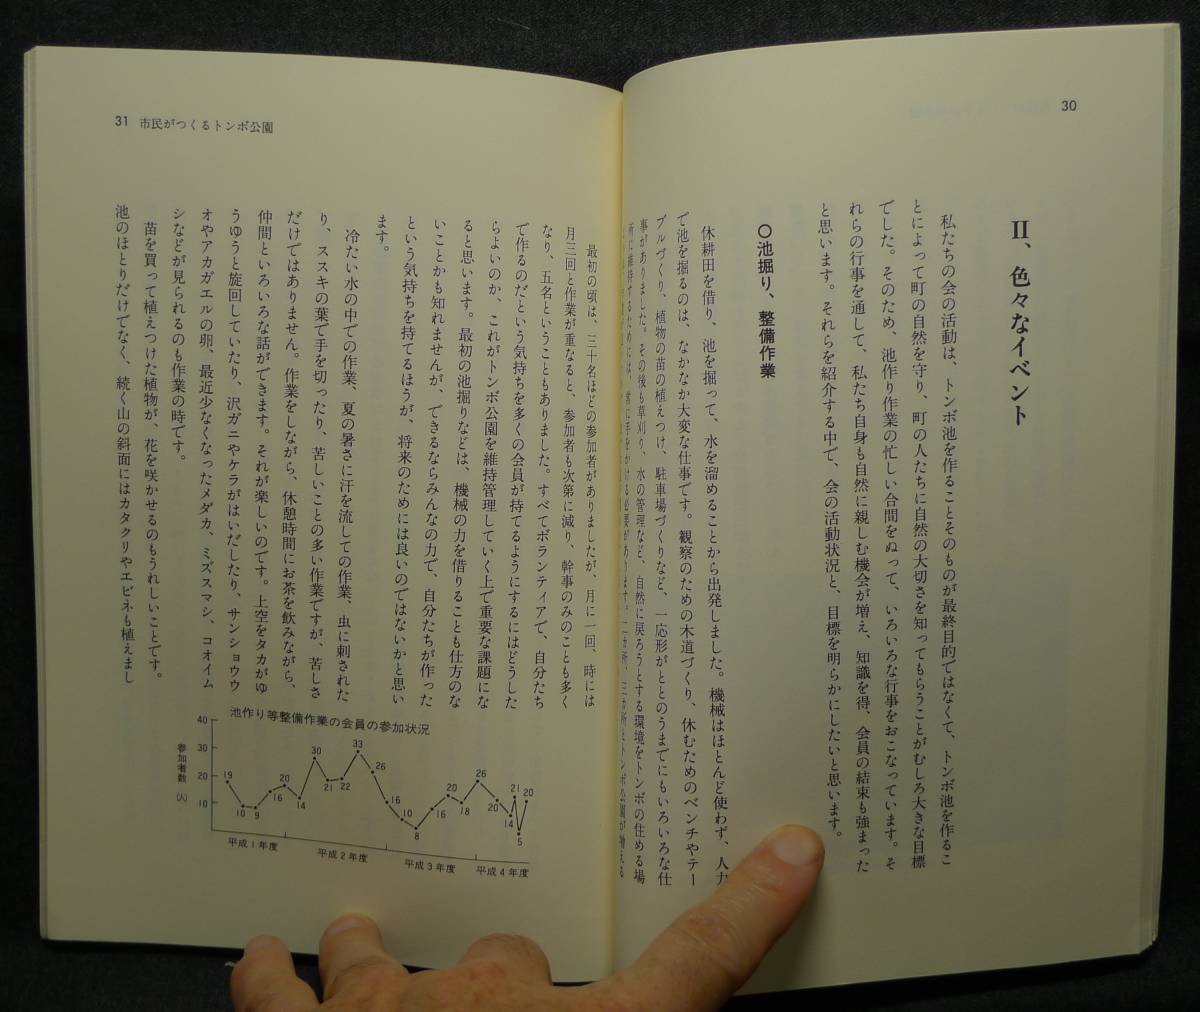 30
II、色々なイベント
私たちの会の活動は、トンボ池を作ることそのものが最終目的ではなくて、トンボ池を作るこ
とによって町の自然を守り、町の人たちに自然の大切さを知ってもらうことがむしろ大きな目標
でした。そのため、池作り作業の忙しい合間をぬって、いろいろな行事をおこなっています。そ
れらの行事を通して、私たち自身も自然に親しむ機会が増え、知識を得、会員の結束も強まった
と思います。それらを紹介する中で、会の活動状況と、目標を明らかにしたいと思います。
○池掘り、整備作業
休耕田を借り、池を掘って、水を溜めることから出発しました。機械はほとんど使わず、人力
で池を掘るのは、なかなか大変な仕事です。観察のための木道づくり、休むためのベンチやテー
ブルづくり、植物の苗の植えつけ、駐車場づくりなど、一応形がととのうまでにもいろいろな仕
事がありました。その後も草刈り、水の管理など、自然に戻ろうとする環境をトンボの住める場
所に維持するためには、常に手をかける必要があります。二カ所、三カ所とトンボ公園が増える
31 市民がつくるトンボ公園
最初の頃は、三十名ほどの参加者がありましたが、月に一回、時には
月三回と作業が重なると、参加者も次第に減り、幹事のみのことも多く
なり、五名ということもありました。すべてボランティアで、自分たち
で作るのだという気持ちを多くの会員が持てるようにするにはどうした
らよいのか、これがトンボ公園を維持管理していく上で重要な課題にな
ると思います。最初の池掘りなどは、機械の力を借りることも仕方のな
いことかも知れませんが、できるならみんなの力で、自分たちが作った
という気持ちを持てるほうが、将来のためには良いのではないかと思い
ます。
冷たい水の中での作業、夏の暑さに汗を流しての作業、虫に刺された
り、ススキの葉で手を切ったり、苦しいことの多い作業ですが、苦しさ
だけではありません。作業をしながら、休憩時間にお茶を飲みながら、
仲間といろいろな話ができます。それが楽しいのです。上空をタカがゆ
うゆうと旋回していたり、沢ガニやケラがはいだしたり、サンショウウ
オやアカガエルの卵、最近少なくなったメダカ、ミズスマシ、コオイム
シなどが見られるのも作業の時です。
苗を買って植えつけた植物が、花を咲かせるのもうれしいことです。
池のほとりだけでなく、続く山の斜面にはカタクリやエビネも植えまし
池作り等整備作業の会員の参加状況
40
30
20
10
参加者数(人)
19
10
9
16
20
14
30
21
22
33
26
16
8
16
18
26
20
14
21
5
20
平成1年度
平成2年度
平成3年度
平成4年度